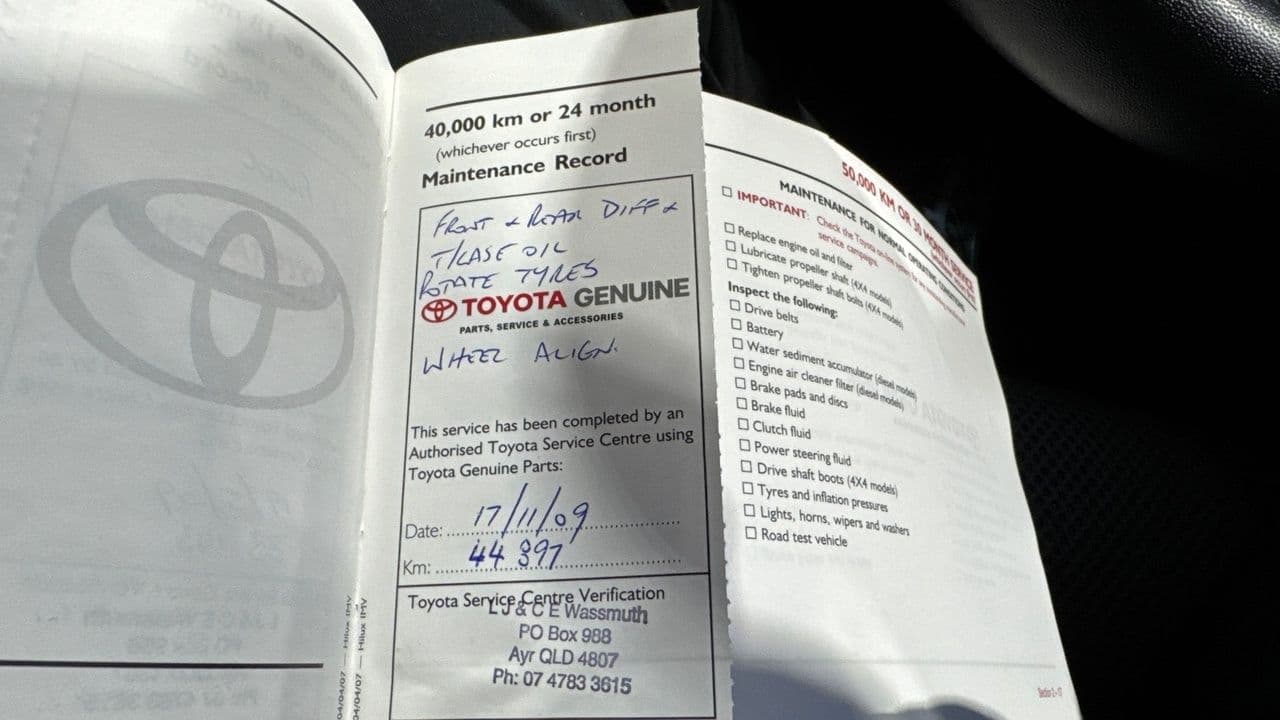 40,000 km or 24 month
(whichever occurs first)
Maintenance Record
FRONT & REAR DIFF &
T/CASE OIL
ROTATE TYRES
TOYOTA GENUINE
PARTS, SERVICE & ACCESSORIES
WHEEL ALIGN.
This service has been completed by an
Authorised Toyota Service Centre using
Toyota Genuine Parts:
Date: 17/11/09
Km: 44 897
Toyota Service Centre Verification
L J & C E Wassmuth
PO Box 988
Ayr QLD 4807
Ph: 07 4783 3615
04/04/07 — Hilux IMV
04/04/07 — Hilux IMV
50,000 KM OR 30 MONTH SERVICE
MAINTENANCE FOR NORMAL OPERATING CONDITIONS
IMPORTANT: Check the Toyota on-line system for any outstanding
service campaigns.
Replace engine oil and filter
Lubricate propeller shaft (4X4 models)
Tighten propeller shaft bolts (4X4 models)
Inspect the following:
Drive belts
Battery
Water sediment accumulator (diesel models)
Engine air cleaner filter (diesel models)
Brake pads and discs
Brake fluid
Clutch fluid
Power steering fluid
Drive shaft boots (4X4 models)
Tyres and inflation pressures
Lights, horns, wipers and washers
Road test vehicle